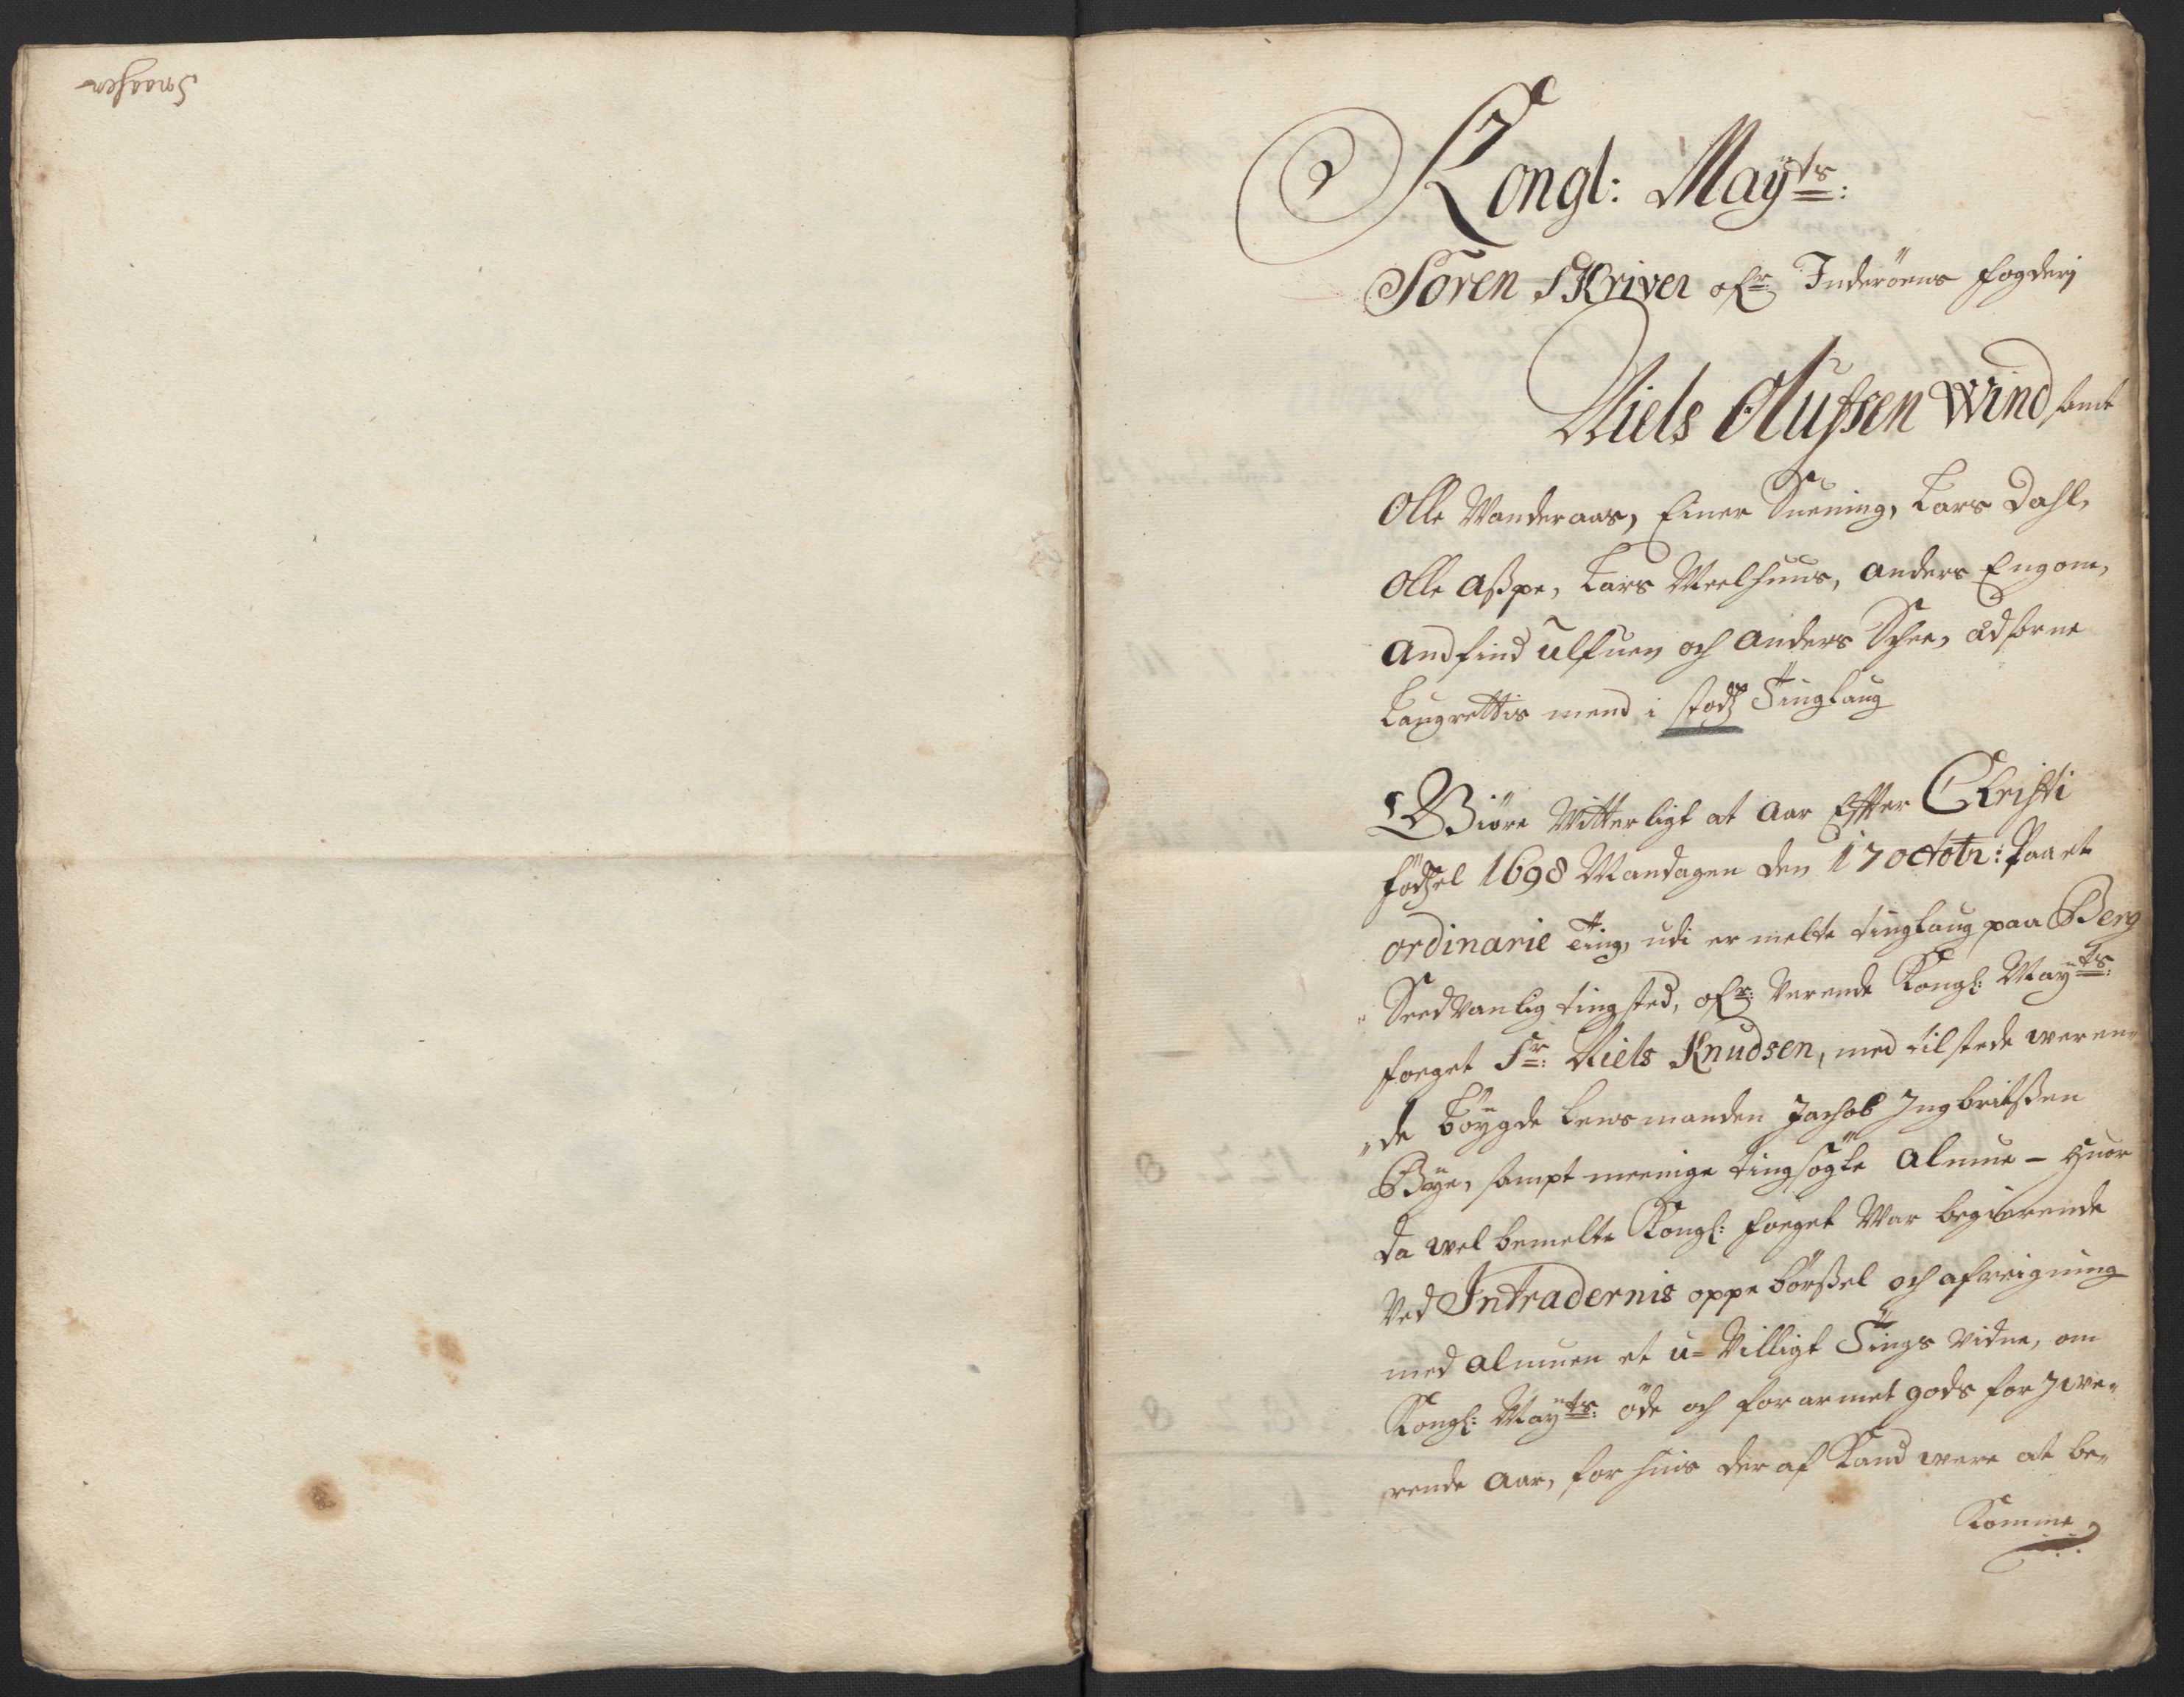 Snaasen
Kongl: Mayts:
Soren Skriver ofr Inderöens fogderj
Niels Olufsen Wind samt
Olle Wanderaas, Einer Suening, Lars Dahl,
Olle Aspe, Lars Meelhuus, Anders Engom,
Andfind Ulfuen och Anders Schee, Edsorne
Laugrettis mend i stodz Tinglaug
Giöre Witterligt at Aar Effter Christi
födzel 1698 Mandagen den 17 octobr: Paa et
ordinarie ting, udi er melte tinglaug paa Berg
Seedvanlig tingsted, ofr: Verende Kongl: Mayts:
foeget Sr: Niels Knudsen, med tilstede weren-
de böygde Lensmanden Jachob Ingbritsen
Bye, sampt meenige tingsögte Almue - Huor
da wel bemelte Kongl: foeget War begierende
Ved Intradernis oppebörsel och afreigning
med Almuen et u-Villigt Tings Vidne, om
Kongl: Mayts: öde och forarmet gods for Jwe-
rende Aar, for huis der af Kand were at be-
Komme